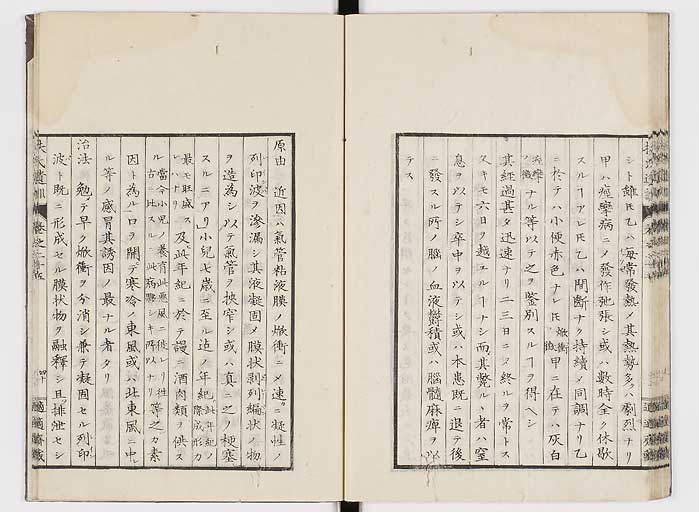 シト雖モ乙ハ毎常發熱ノ其熱勢多クハ劇烈ナリ
甲ハ痙攣病ニノ發作弛張シ或ハ數時全ク休歇
スルヿアレモ乙ハ間斷ナク持續メ同調ナリ乙
ニ於テハ小便赤色ナレモ焮衝性甲ニ在テハ灰白
痙攣ノ徴ナル等以テ之ヲ鑒別スルヿヲ得ヘシ
其經過甚タ迅速ナリ二三日ニメ終ルヲ常トス
スキモ六日ヲ越ユルヿナシ而其斃ルヽ者ハ窒
息ヲ以テシ卒中ヲ以テシ或ハ本患既ニ退テ後
ニ發スル所ノ腦ノ血液欝積或ハ腦髓麻痺ヲ以
テス
原由 近因ハ氣管粘液膜ノ焮衝ニメ速ニ凝性ノ
列印波ヲ滲漏シ其液凝固メ膜状剥列編状ノ物
ヲ造為シ以テ氣管ヲ挾窄シ或ハ真ニ之ノ梗塞
スルニアリ小兒七歳ニ至ル迠ノ年紀此年紀ノ際成形力
最モ旺盛スレハナリ及此年紀ニ於テ謾ニ酒肉類ヲ供ス
ル當今小兒ノ養育此悪風ニ從ヒリ徃古ニ比スルニ此病夥シキ所以ナリ等之カ素
因ト為ル口ヲ開テ寒冷ノ東風或ハ北東風ニ中
ル等ノ感冒其誘因ノ最ナル者タリ
治法 勉テ早ク焮衝ヲ分消シ兼テ凝固セル列印
波ト既ニ形成セル膜状物ヲ融釋シ且排泄セシ
扶氏遺訓 卷之十五
四十
適適齋藏